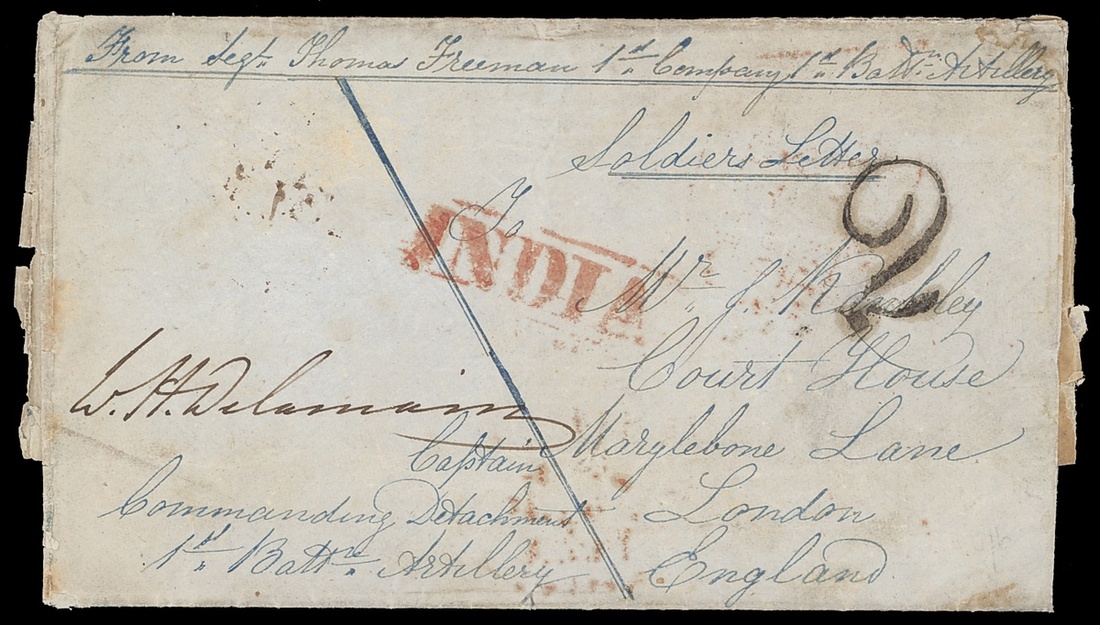 From Segt. Thomas Freeman 1st Company 1st Battn. Artillery
Soldiers Letter
2
To
INDIA
Mr. J.
Court House
W. H. Delamain
Marylebone Lane
Captain
London
Commanding Detachment
England
1st Battn. Artillery